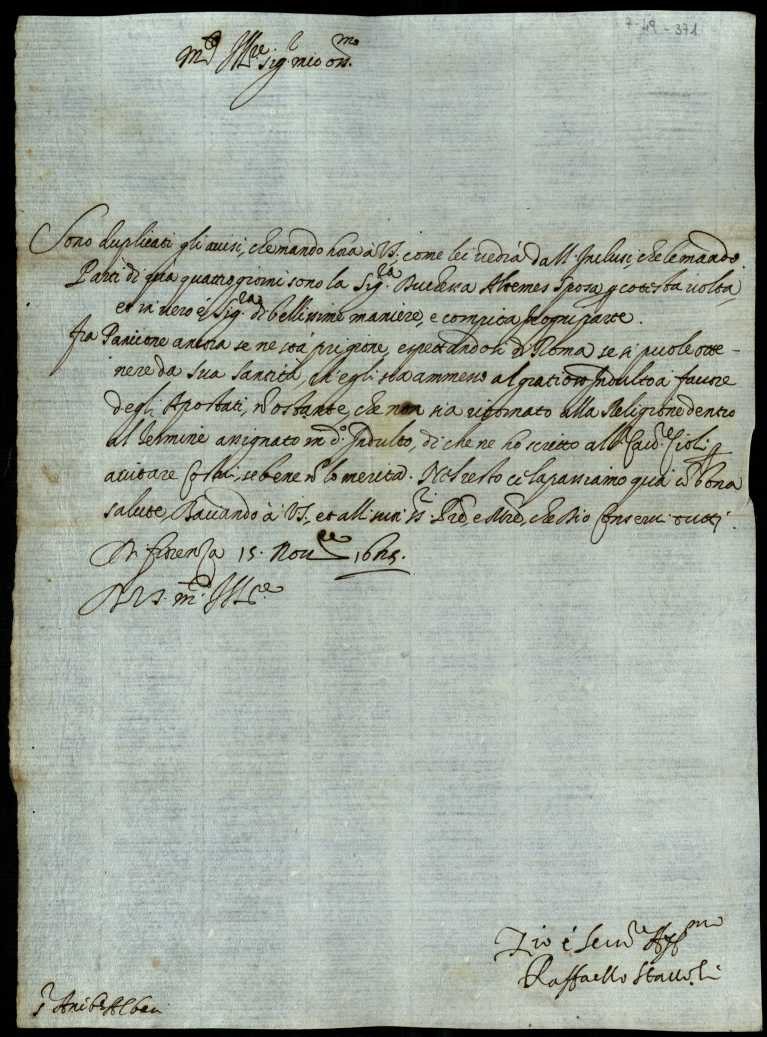 7-49-371
m.to Ill.re sig.r mio oss.mo
Sono duplicati gli avisi, che mando hora à V.S. come lei vedrà dall'Inclusi, che le mando.
Parti di qua quattro giorni sono la Sig.ra Duchessa Altemps sposa p cotesta volta,
et in vero è Sig.ra di bellissime maniere, e compita p ogni parte.
fra Pancione ancora se ne stà prigione, espettandosi di Roma se si puole otte-
nere da Sua Santità, ch'egli sia ammesso al gratioso Indulto à favore
degli Apostati, nostante, che non sia ritornato alla Religione dentro
al termine assignato in d.o Indulto, di che ne ho scritto all' Cav.re Cioli p
aiutare se bene nō lo merita. Nel resto ce la passiamo quà cō bona
salute, Baciando à V.S. et alli sui SS.ri Pre, e Mre, che Dio conservi tutti.
Di fiorenza 15. Nov.re
Di V.S. m.to Ill.re
Zio è Serv.re Aff.mo
Raffaello Staccoli
S.r Anib.e Alban